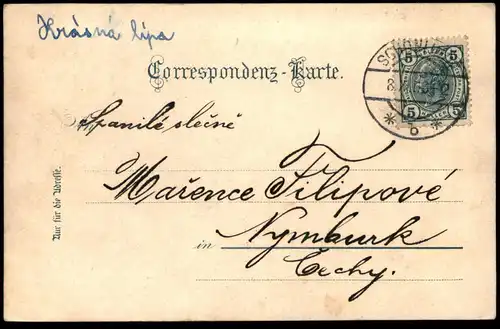 Krásná lípa
Correspondenz-Karte.
5 5
5 5
* b *
Spanilé slečně
Mařence Filipové
in Nymburk
Čechy.
Nur für die Adresse.